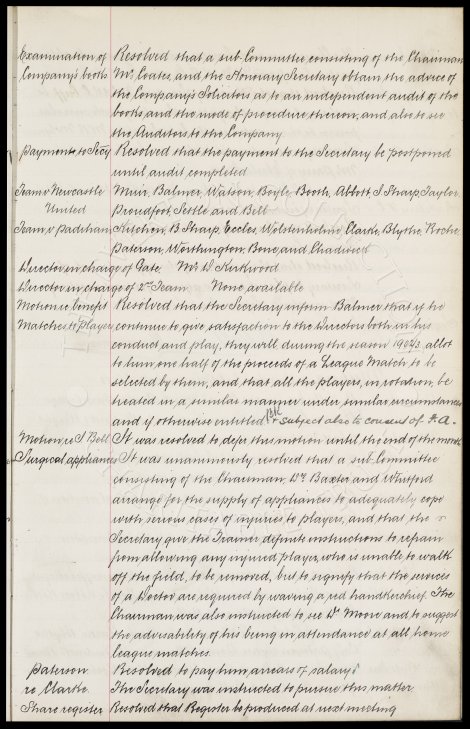 Examination of Resolved that a sub-Committee consisting of the Chairman
Company's books Mr. Coates, and the Honorary Secretary obtain the advice of
the Company's Solicitors as to an independent audit of the
books, and the mode of procedure thereon, and also to see
the Auditors to the Company
Payment to Secy Resolved that the payment to the Secretary be postponed
until audit completed
Team v Newcastle Muir, Balmer, Watson, Boyle, Booth, Abbott, J Sharp, Taylor,
United Proudfoot, Settle and Bell
Team v Padiham Kitchen, B Sharp, Eccles, Wolstenholme, Clarke, Blythe, Roche,
Paterson, Worthington, Bone, and Chadwick
Director in charge of Gate. Mr D. Kirkwood
Director in charge of 2nd Team. None available
Motion re benefit Resolved that the Secretary inform Balmer that if he
Matches to Players continue to give satisfaction to the Directors both in his
conduct and play, they will, during the season 1902/3, allot
to him one half of the proceeds of a League Match to be
selected by them, and that all the players, in rotation, be
treated in a similar manner under similar circumstances
and if otherwise entitled & subject also to consent of F.A.
Motion re J Bell It was resolved to defer this motion until the end of the month
Surgical appliances It was unanimously resolved that a sub-Committee
consisting of the Chairman, Dr. Baxter and Whitford
arrange for the supply of appliances to adequately cope
with serious cases of injuries to players, and that the
Secretary give the Trainer definite instructions to refrain
from allowing any injured player, who is unable to walk
off the field, to be removed, but to signify that the services
of a Doctor are required by waving a red handkerchief. The
Chairman was also instructed to see Dr Moore and to suggest
the advisability of his being in attendance at all home
league matches.
Paterson Resolved to pay him arrears of salary
re Clarke The Secretary was instructed to pursue this matter
Share register Resolved that Register be produced at next meeting